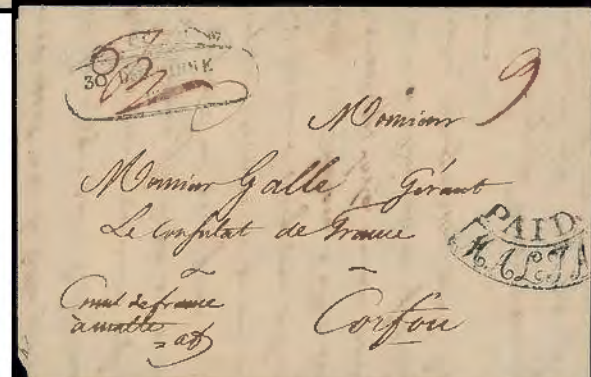 30 DECEMBRE
9
Monsieur
Monsieur Galle Gérant
Le Consulat de France
PAID
MALTA
Consulat de france
à malte
Corfou